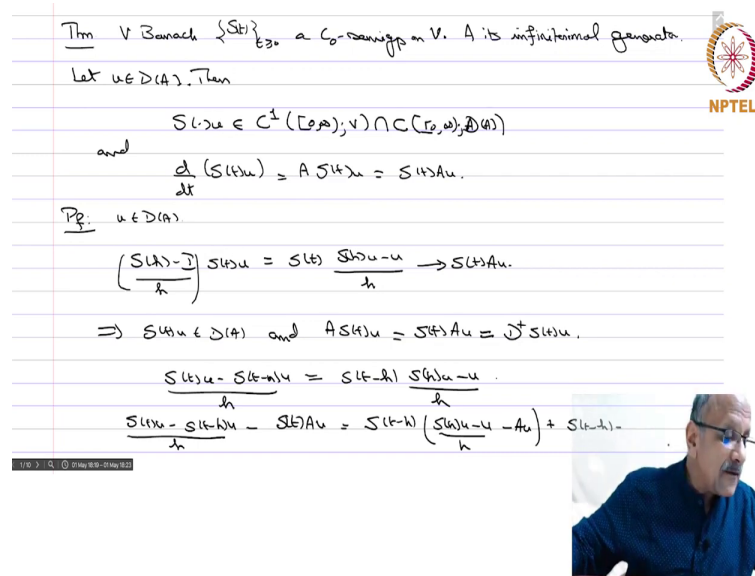 Thm V Banach {S(t)}_{t≥0} a C₀-semigp on V. A its infinitesimal generator.
Let u ∈ D(A). Then
S(·)u ∈ C¹([0,∞); V) ∩ C([0,∞); D(A))
and
d/dt (S(t)u) = A S(t)u = S(t)Au.
Pf: u ∈ D(A)
((S(h) - I)/h) S(t)u = S(t) (S(h)u - u)/h → S(t)Au.
⇒ S(t)u ∈ D(A) and A S(t)u = S(t)Au = D⁺ S(t)u.
(S(t)u - S(t-h)u)/h = S(t-h) (S(h)u - u)/h .
(S(t)u - S(t-h)u)/h - S(t)Au = S(t-h) ((S(h)u - u)/h - Au) + S(t-h) -
NPTEL
1/10 01 May 18:19 - 01 May 18:23